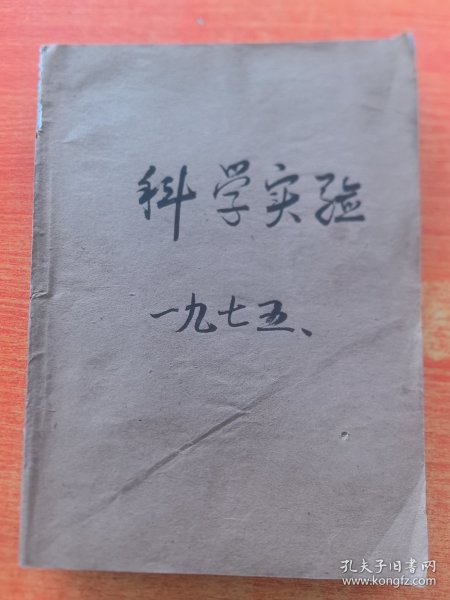 科学实验
一九七五、
孔夫子旧书网
www.kongfz.com